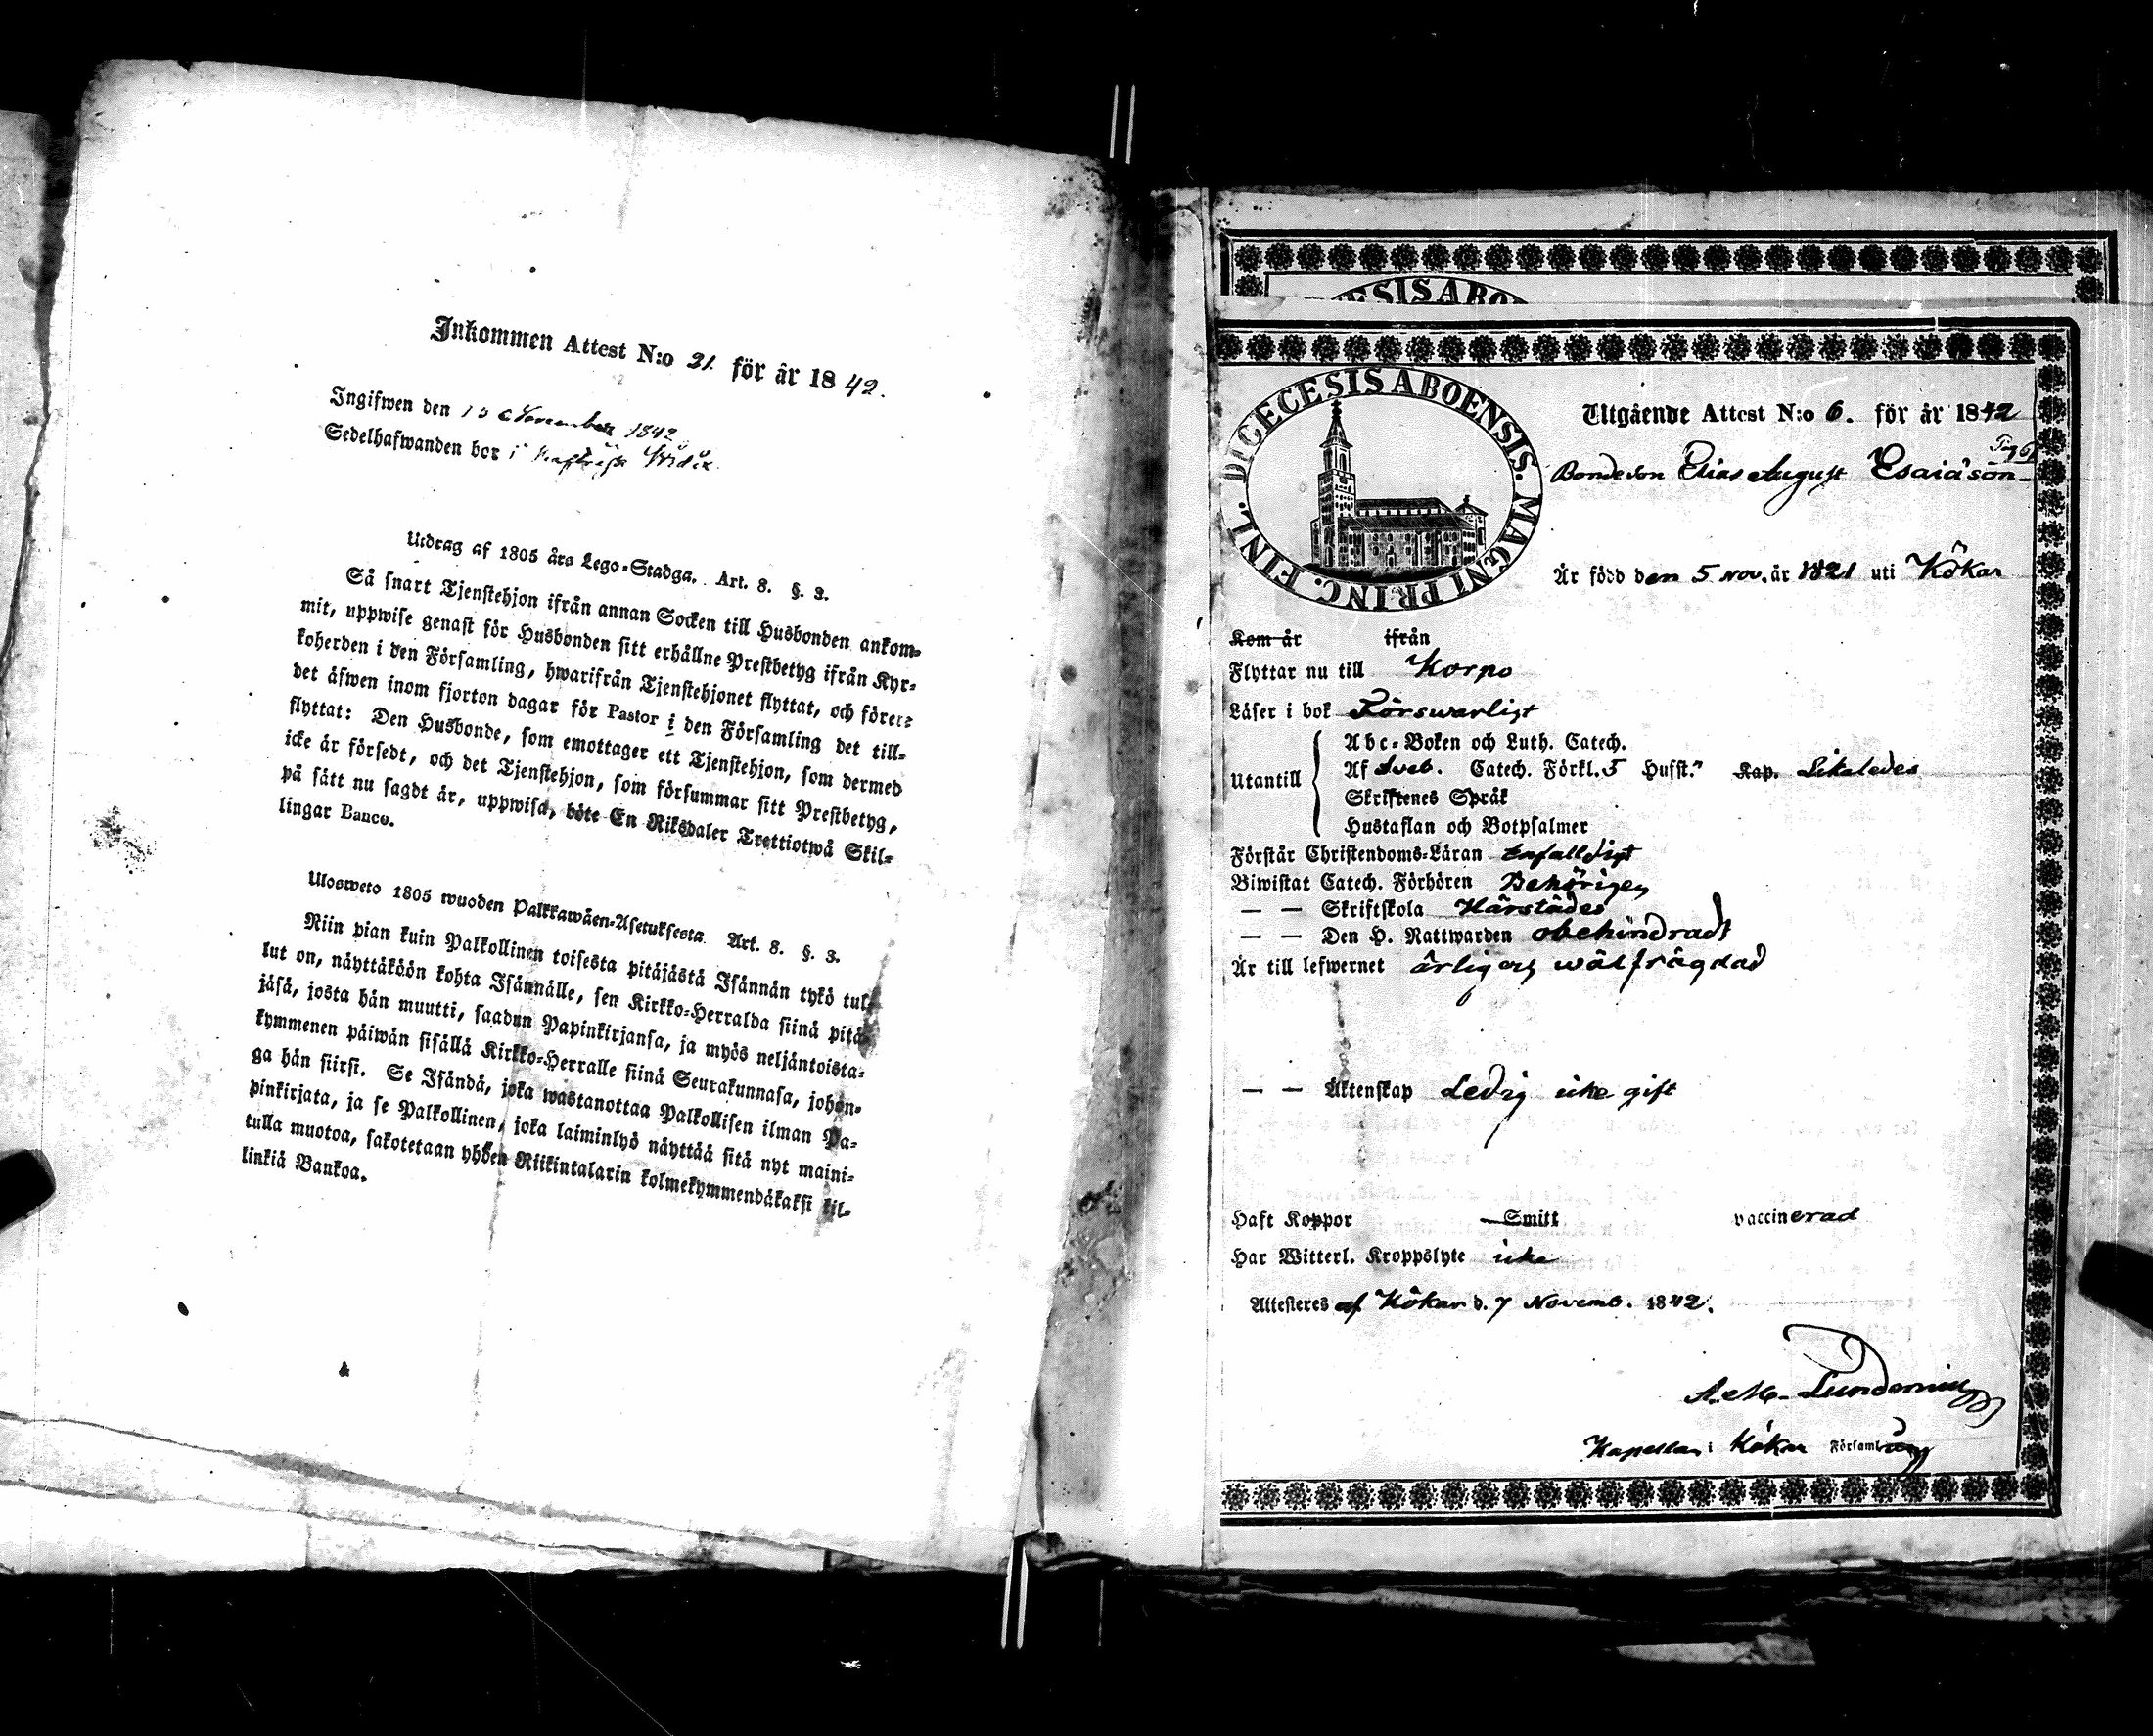 Inkommen Attest N:o 21. för år 1842.
Ingifwen den 13 November 1842
Sedelhafwanden bor i
Utdrag af 1805 års Lego-Stadga. Art. 8. §. 3.
Så snart Tjenstehjon ifrån annan Socken till Husbonden ankom-
mit, uppwise genast för Husbonden sitt erhållne Prestbetyg ifrån Kyr-
koherden i den Församling, hwarifrån Tjenstehjonet flyttat, och förete
det äfwen inom fjorton dagar för Pastor i den Församling det till-
flyttat: Den Husbonde, som emottager ett Tjenstehjon, som dermed
icke är försedt, och det Tjenstehjon, som försummar sitt Prestbetyg,
på sätt nu sagdt är, uppwisa, böte En Riksdaler Trettiotwå Skil-
lingar Banco.
Ulosweto 1805 wuoden Palkkawäen-Asetuksesta. Art. 8. §. 3.
Niin pian kuin Palkollinen toisesta pitäjästä Isännän tykö tul-
lut on, näyttäköön kohta Isännälle, sen Kirkko-Herralda siinä pitä-
jäsä, josta hän muutti, saadun Papinkirjansa, ja myös neljäntoista-
kymmenen päiwän sisällä Kirkko-Herralle siinä Seurakunnasa, johon-
ga hän siirsi. Se Isändä, joka wastanottaa Palkollisen ilman Pa-
pinkirjata, ja se Palkollinen, joka laiminlyö näyttää sitä nyt maini-
tulla muotoa, sakotetaan yhden Riikintalarin kolmekymmendäkaksi kil-
linkiä Bankoa.
ESIS ABO
DIŒCESIS ABOENSIS. MAGNI PRINC. FINL.
Utgående Attest N:o 6. för år 1842
Pag 6
Bondeson Elias August Esaiäson
Är född den 5 Nov. år 1821 uti Kökar
Kom år ifrån
Flyttar nu till Korpo
Läser i bok Förswarligt
Utantill
Abc-Boken och Luth. Catech.
Af Sveb. Catech. Förkl. 5 Hufst. Kap. Likaledes
Skriftenes Språk
Hustaflan och Botpsalmer
Förstår Christendoms-Läran Enfalldigt
Biwistat Catech. Förhören Behörigen
— — Skriftskola Härstädes
— — Den H. Nattwarden obehindradt
Är till lefwernet ärlig och wälfrägdad
— — Äktenskap Ledig icke gift
Haft Koppor Smitt vaccinerad
Har Witterl. Kroppslyte icke
Attesteres af Kökar d. 7 Novemb. 1842.
Lundenius
Kapellan i Kökar Församling